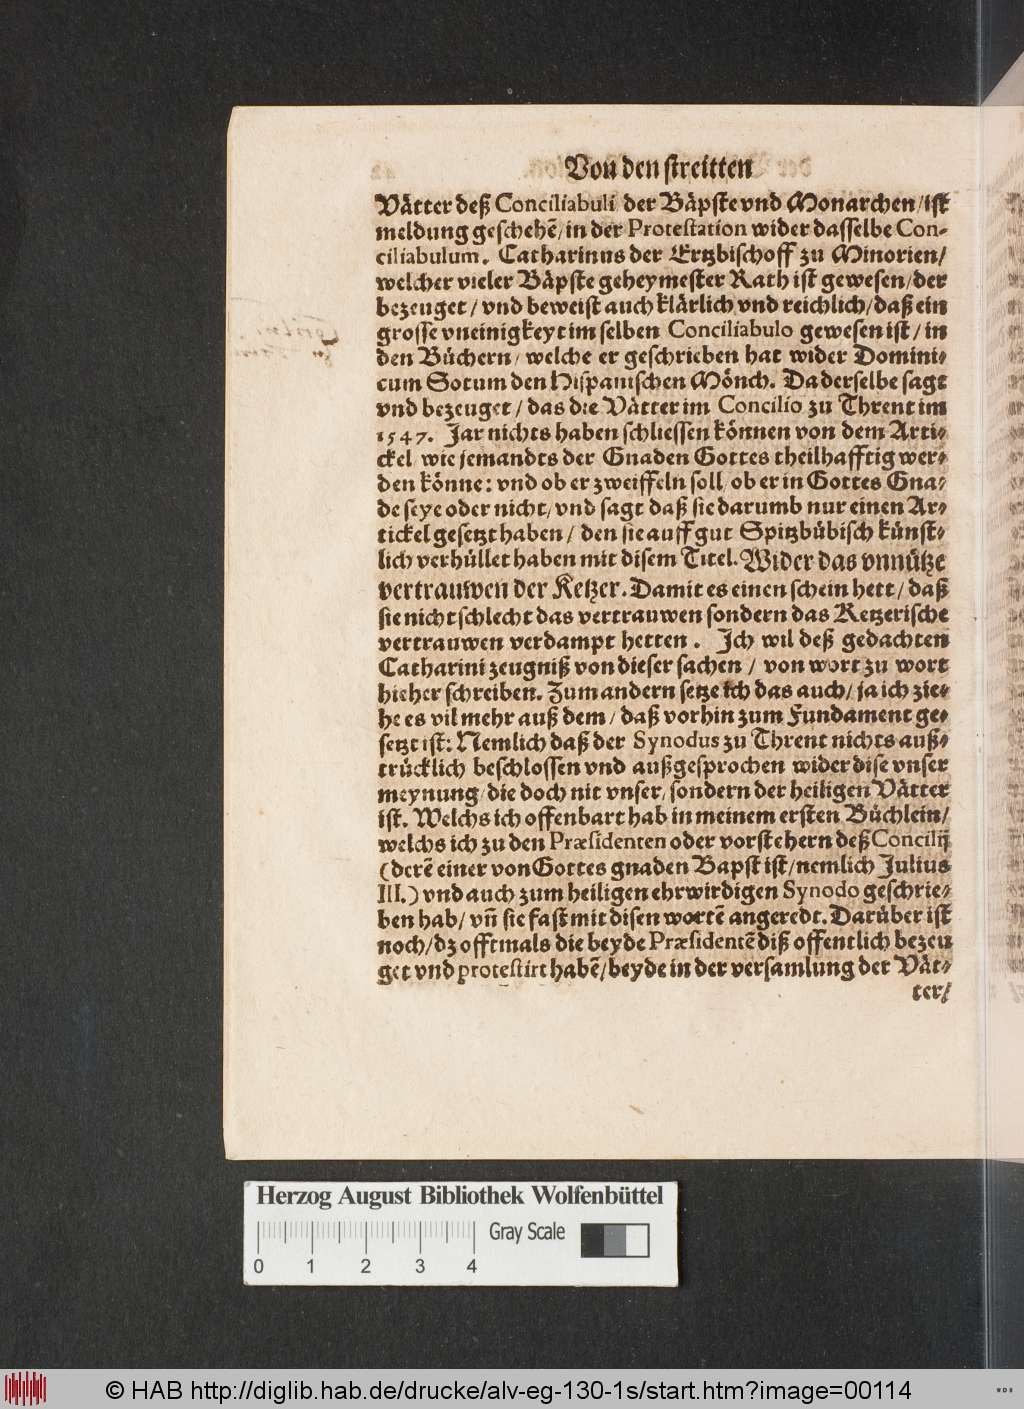 Von den streitten
Vätter deß Conciliabuli der Bäpste vnd Monarchen/ist
meldung geschehẽ/in der Protestation wider dasselbe Con-
ciliabulum. Catharinus der Ertzbischoff zu Minorien/
welcher vieler Bäpste geheymester Rath ist gewesen/der
bezeuget/vnd beweist auch klärlich vnd reichlich/daß ein
grosse vneinigkeyt im selben Conciliabulo gewesen ist/in
den Büchern/welche er geschrieben hat wider Domini-
cum Sotum den Hispanischen Mönch. Da derselbe sagt
vnd bezeuget/das die Vätter im Concilio zu Thrent im
1547. Jar nichts haben schliessen können von dem Arti-
ckel wie jemandts der Gnaden Gottes theilhafftig wer-
den könne: vnd ob er zweiffeln soll/ob er in Gottes Gna-
de seye oder nicht/vnd sagt daß sie darumb nur einen Ar-
tickel gesetzt haben/den sie auff gut Spitzbübisch künst-
lich verhüllet haben mit disem Titel. Wider das vnnütze
vertrauwen der Ketzer. Damit es einen schein hett/daß
sie nicht schlecht das vertrauwen sondern das Ketzerische
vertrauwen verdampt hetten. Ich wil deß gedachten
Catharini zeugniß von dieser sachen/von wort zu wort
hieher schreiben. Zum andern setze ich das auch/ja ich zie-
he es vil mehr auß dem/daß vorhin zum Fundament ge-
setzt ist: Nemlich daß der Synodus zu Thrent nichts auß-
trücklich beschlossen vnd außgesprochen wider dise vnser
meynung/die doch nit vnser/sondern der heiligen Vätter
ist. Welchs ich offenbart hab in meinem ersten Büchlein/
welchs ich zu den Præsidenten oder vorstehern deß Concilij
(derẽ einer von Gottes gnaden Bapst ist/nemlich Julius
III.) vnd auch zum heiligen ehrwirdigen Synodo geschrie-
ben hab/vñ sie fast mit disen wortẽ angeredt. Darüber ist
noch/dz offtmals die beyde Præsidentẽ diß offentlich bezeu
get vnd protestirt habẽ/beyde in der versamlung der Vät-
ter/
Herzog August Bibliothek Wolfenbüttel
Gray Scale
0 1 2 3 4
© HAB http://diglib.hab.de/drucke/alv-eg-130-1s/start.htm?image=00114